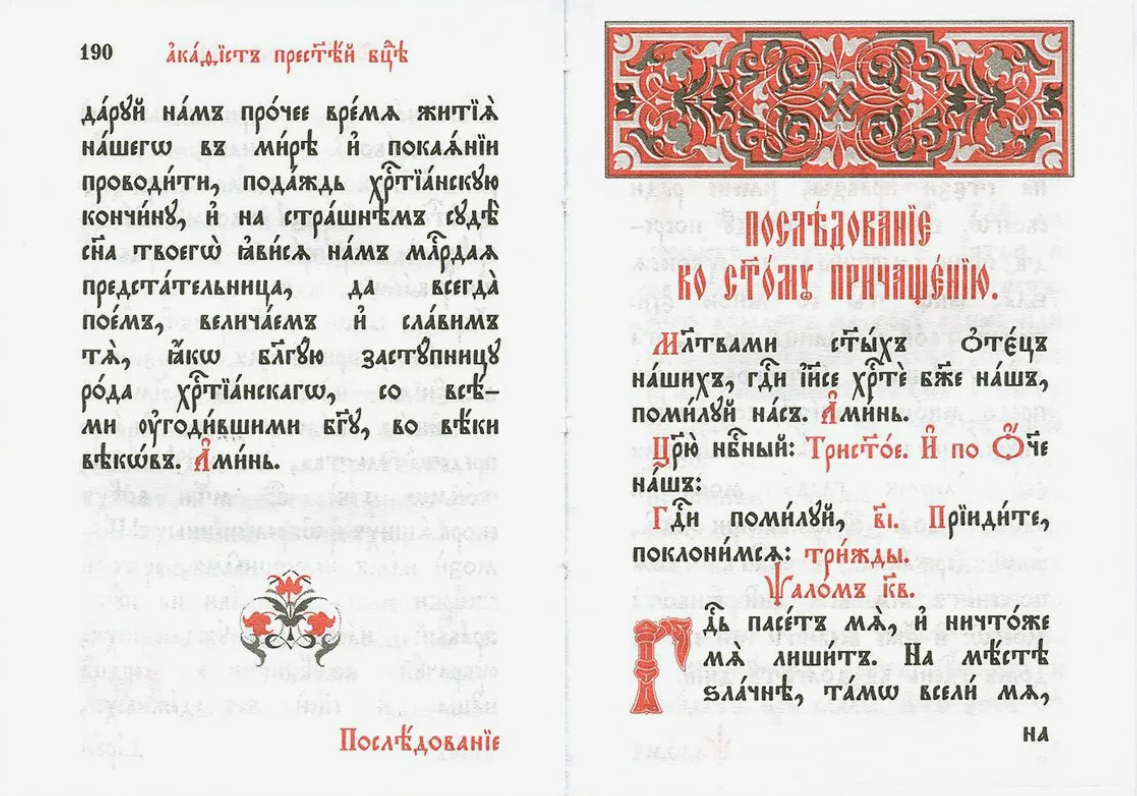 190 а҆ка́ѳїстъ прест҃ѣ́й бц҃ѣ
да́рꙋй на́мъ про́чее вре́мѧ житїѧ̀
на́шегѡ въ ми́рѣ и҆ покаѧ́нїи
проводи́ти, пода́ждь хрⷭ҇тїа́нскꙋю
кончи́нꙋ, и҆ на стра́шнѣмъ сꙋдѣ̀
сн҃а твоегѡ̀ ꙗ҆ви́сѧ на́мъ млⷭ҇рдаѧ
предста́тельница, да всегда̀
пое́мъ, велича́емъ и҆ сла́вимъ
тѧ̀, ꙗ҆́кѡ бл҃гꙋ́ю застꙋ́пницꙋ
ро́да хрⷭ҇тїа́нскагѡ, со всѣ́-
ми ᲂу҆годи́вшими бг҃ꙋ, во вѣ́ки
вѣкѡ́въ. А҆ми́нь.
Послѣ́дованїе
ПОСЛѢ́ДОВАНЇЕ
КО СТ҃О́МꙊ ПРИЧАЩЕ́НЇЮ.
Мл҃твами ст҃ы́хъ ѻ҆те́цъ
на́шихъ, гдⷭ҇и і҆и҃се хрⷭ҇тѐ бж҃е на́шъ,
поми́лꙋй на́съ. А҆ми́нь.
Цр҃ю̀ нбⷭ҇ный: Трист҃о́е. И҆ по Ѻ҆́ч҃е
на́шъ:
Гдⷭ҇и поми́лꙋй, в҃і. Прїиди́те,
поклони́мсѧ: три́жды.
Ѱало́мъ к҃в.
Гдⷭ҇ь пасе́тъ мѧ̀, и҆ ничто́же
мѧ̀ лиши́тъ. На мѣ́стѣ
ѕла́чнѣ, та́мѡ всели́ мѧ,
на